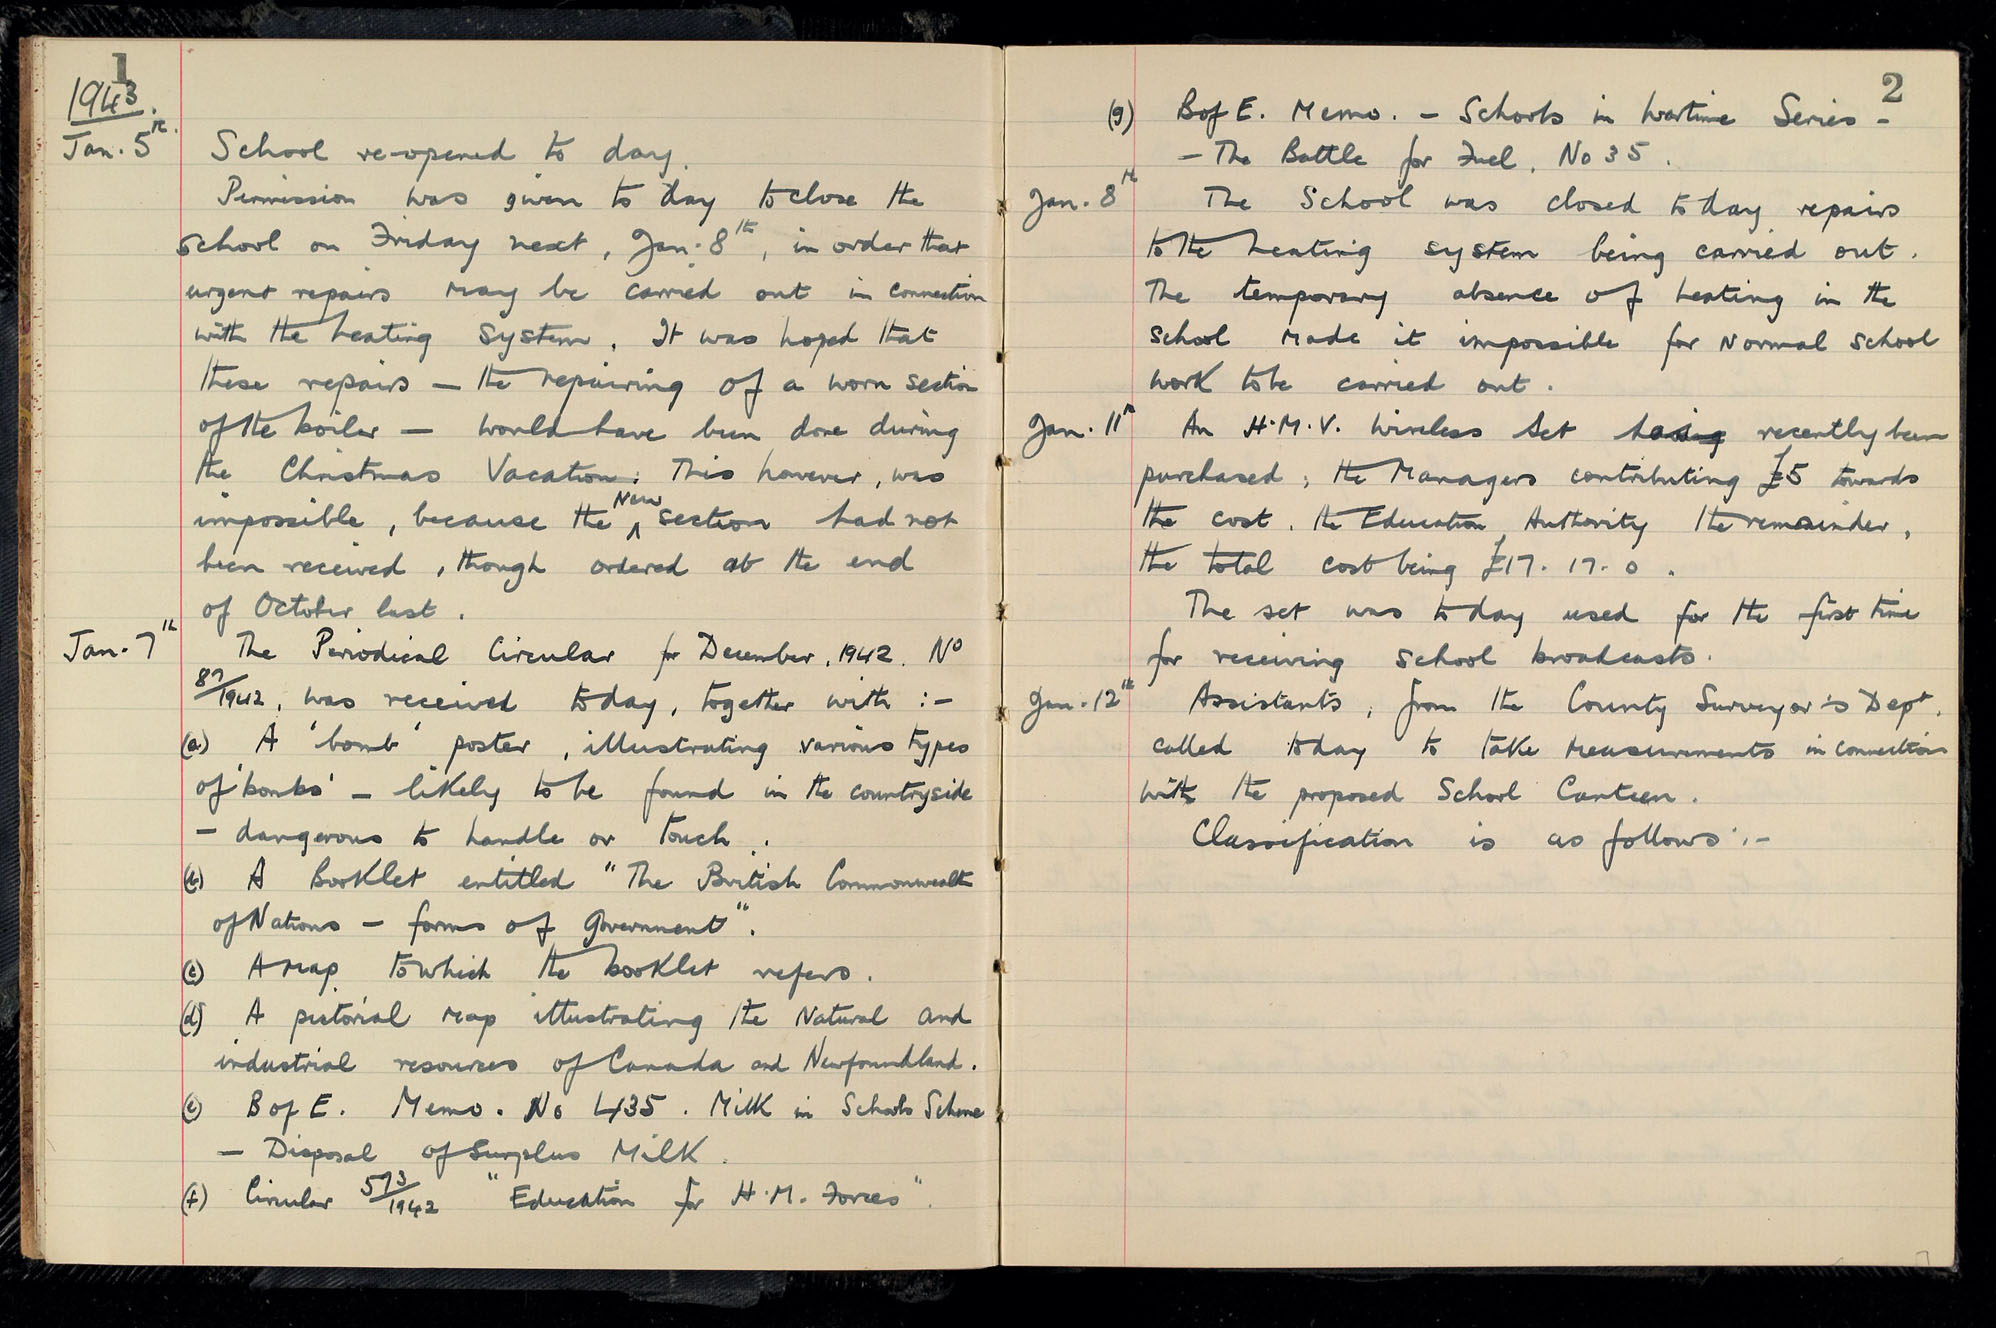 1
1943.
Jan. 5th. School re-opened to day.
Permission was given to day to close the
school on Friday next, Jan. 8th, in order that
urgent repairs may be carried out in connection
with the heating system. It was hoped that
these repairs — the repairing of a worn section
of the boiler — would have been done during
the Christmas Vacation: This however, was
impossible, because the New section had not
been received, though ordered at the end
of October last.
Jan. 7th The Periodical Circular for December, 1942. No
87/1942, was received today, together with :-
(a) A 'bomb' poster, illustrating various types
of 'bombs' — likely to be found in the countryside
— dangerous to handle or touch.
(b) A Booklet entitled "The British Commonwealth
of Nations — forms of Government".
(c) A map to which the booklet refers.
(d) A pictorial map illustrating the Natural and
industrial resources of Canada and Newfoundland.
(e) B of E. Memo. No 435. Milk in Schools Scheme
— Disposal of Surplus Milk.
(f) Circular 573/1942 "Education for H.M. Forces".
2
(g) B of E. Memo. — Schools in Wartime Series —
— The Battle for Fuel. No 35.
Jan. 8th The School was closed today repairs
to the heating system being carried out.
The temporary absence of heating in the
school made it impossible for Normal school
work to be carried out.
Jan. 11th An H.M.V. Wireless Set having recently been
purchased; the Managers contributing £5 towards
the cost, the Education Authority the remainder,
the total cost being £17. 17. 0.
The set was today used for the first time
for receiving school broadcasts.
Jan. 12th Assistants, from the County Surveyor's Dept.
called today to take measurements in connection
with the proposed School Canteen.
Classification is as follows :-